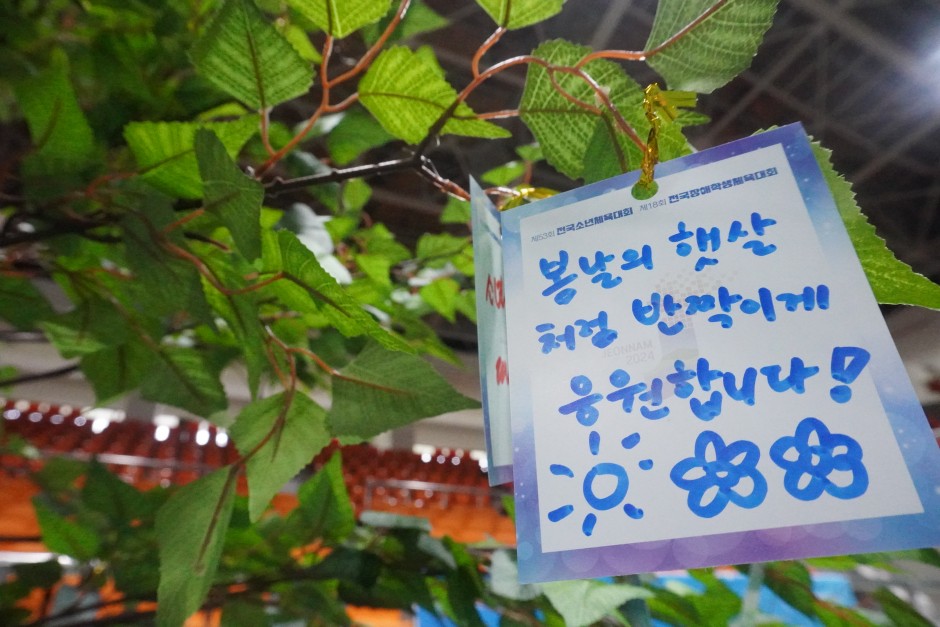 제53회 전국소년체육대회 제18회 전국장애학생체육대회
봄날의 햇살
처럼 반짝이게
응원합니다!